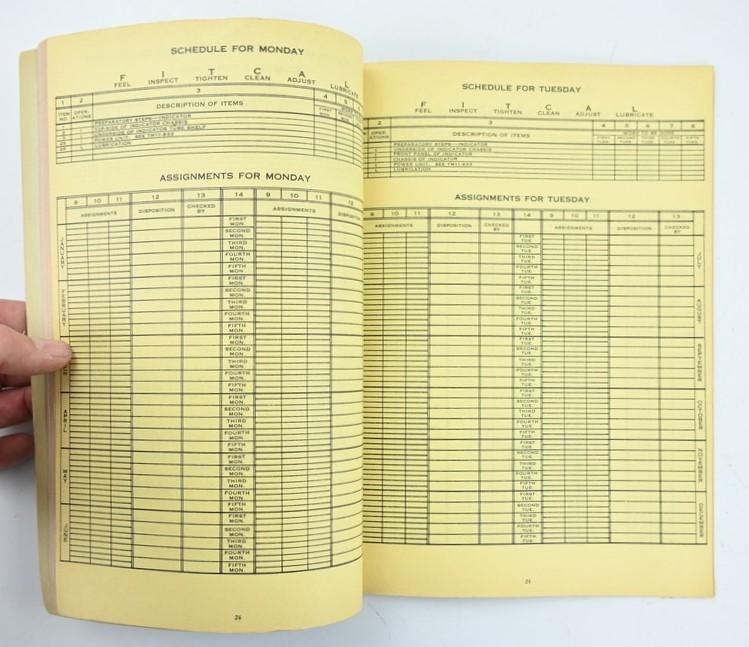 SCHEDULE FOR MONDAY
F I T C A L
FEEL INSPECT TIGHTEN CLEAN ADJUST LUBRICATE
1 2 3 4 5
ITEM NO. OPER-ATIONS DESCRIPTION OF ITEMS FIRST MON.
PREPARATORY STEPS—INDICATOR
TOP-SIDE OF INDICATOR CHASSIS
UNDERSIDE OF INDICATOR TUBE SHELF
POWER UNIT. SEE TM11-
LUBRICATION
ASSIGNMENTS FOR MONDAY
9 10 11 12 13 14 9 10 11 12
ASSIGNMENTS DISPOSITION CHECKED BY ASSIGNMENTS
JANUARY
FIRST MON.
SECOND MON.
THIRD MON.
FOURTH MON.
FIFTH MON.
FEBRUARY
FIRST MON.
SECOND MON.
THIRD MON.
FOURTH MON.
FIFTH MON.
FIRST MON.
SECOND MON.
THIRD MON.
FOURTH MON.
FIFTH MON.
APRIL
FIRST MON.
SECOND MON.
THIRD MON.
FOURTH MON.
FIFTH MON.
MAY
FIRST MON.
SECOND MON.
THIRD MON.
FOURTH MON.
FIFTH MON.
JUNE
FIRST MON.
SECOND MON.
THIRD MON.
FOURTH MON.
FIFTH MON.
SCHEDULE FOR TUESDAY
F I T C A L
FEEL INSPECT TIGHTEN CLEAN ADJUST LUBRICATE
2 3 4 5 6 7 8
OPER-ATIONS DESCRIPTION OF ITEMS WORK TO BE DONE
FIRST TUES. SECOND TUES. THIRD TUES. FOURTH TUES. FIFTH TUES.
PREPARATORY STEPS—INDICATOR
UNDERSIDE OF INDICATOR CHASSIS
FRONT PANEL OF INDICATOR
CHASSIS OF INDICATOR
POWER UNIT. SEE TM11-
LUBRICATION
ASSIGNMENTS FOR TUESDAY
9 10 11 12 13 14 9 10 11 12 13
ASSIGNMENTS DISPOSITION CHECKED BY ASSIGNMENTS DISPOSITION CHECKED BY
FIRST TUE.
SECOND TUE.
THIRD TUE.
FOURTH TUE.
FIFTH TUE.
FIRST TUE.
SECOND TUE.
THIRD TUE.
FOURTH TUE.
FIFTH TUE.
FIRST TUE.
SECOND TUE.
THIRD TUE.
FOURTH TUE.
FIFTH TUE.
FIRST TUE.
SECOND TUE.
THIRD TUE.
FOURTH TUE.
FIFTH TUE.
FIRST TUE.
SECOND TUE.
THIRD TUE.
FOURTH TUE.
FIFTH TUE.
FIRST TUE.
SECOND TUE.
THIRD TUE.
FOURTH TUE.
FIFTH TUE.